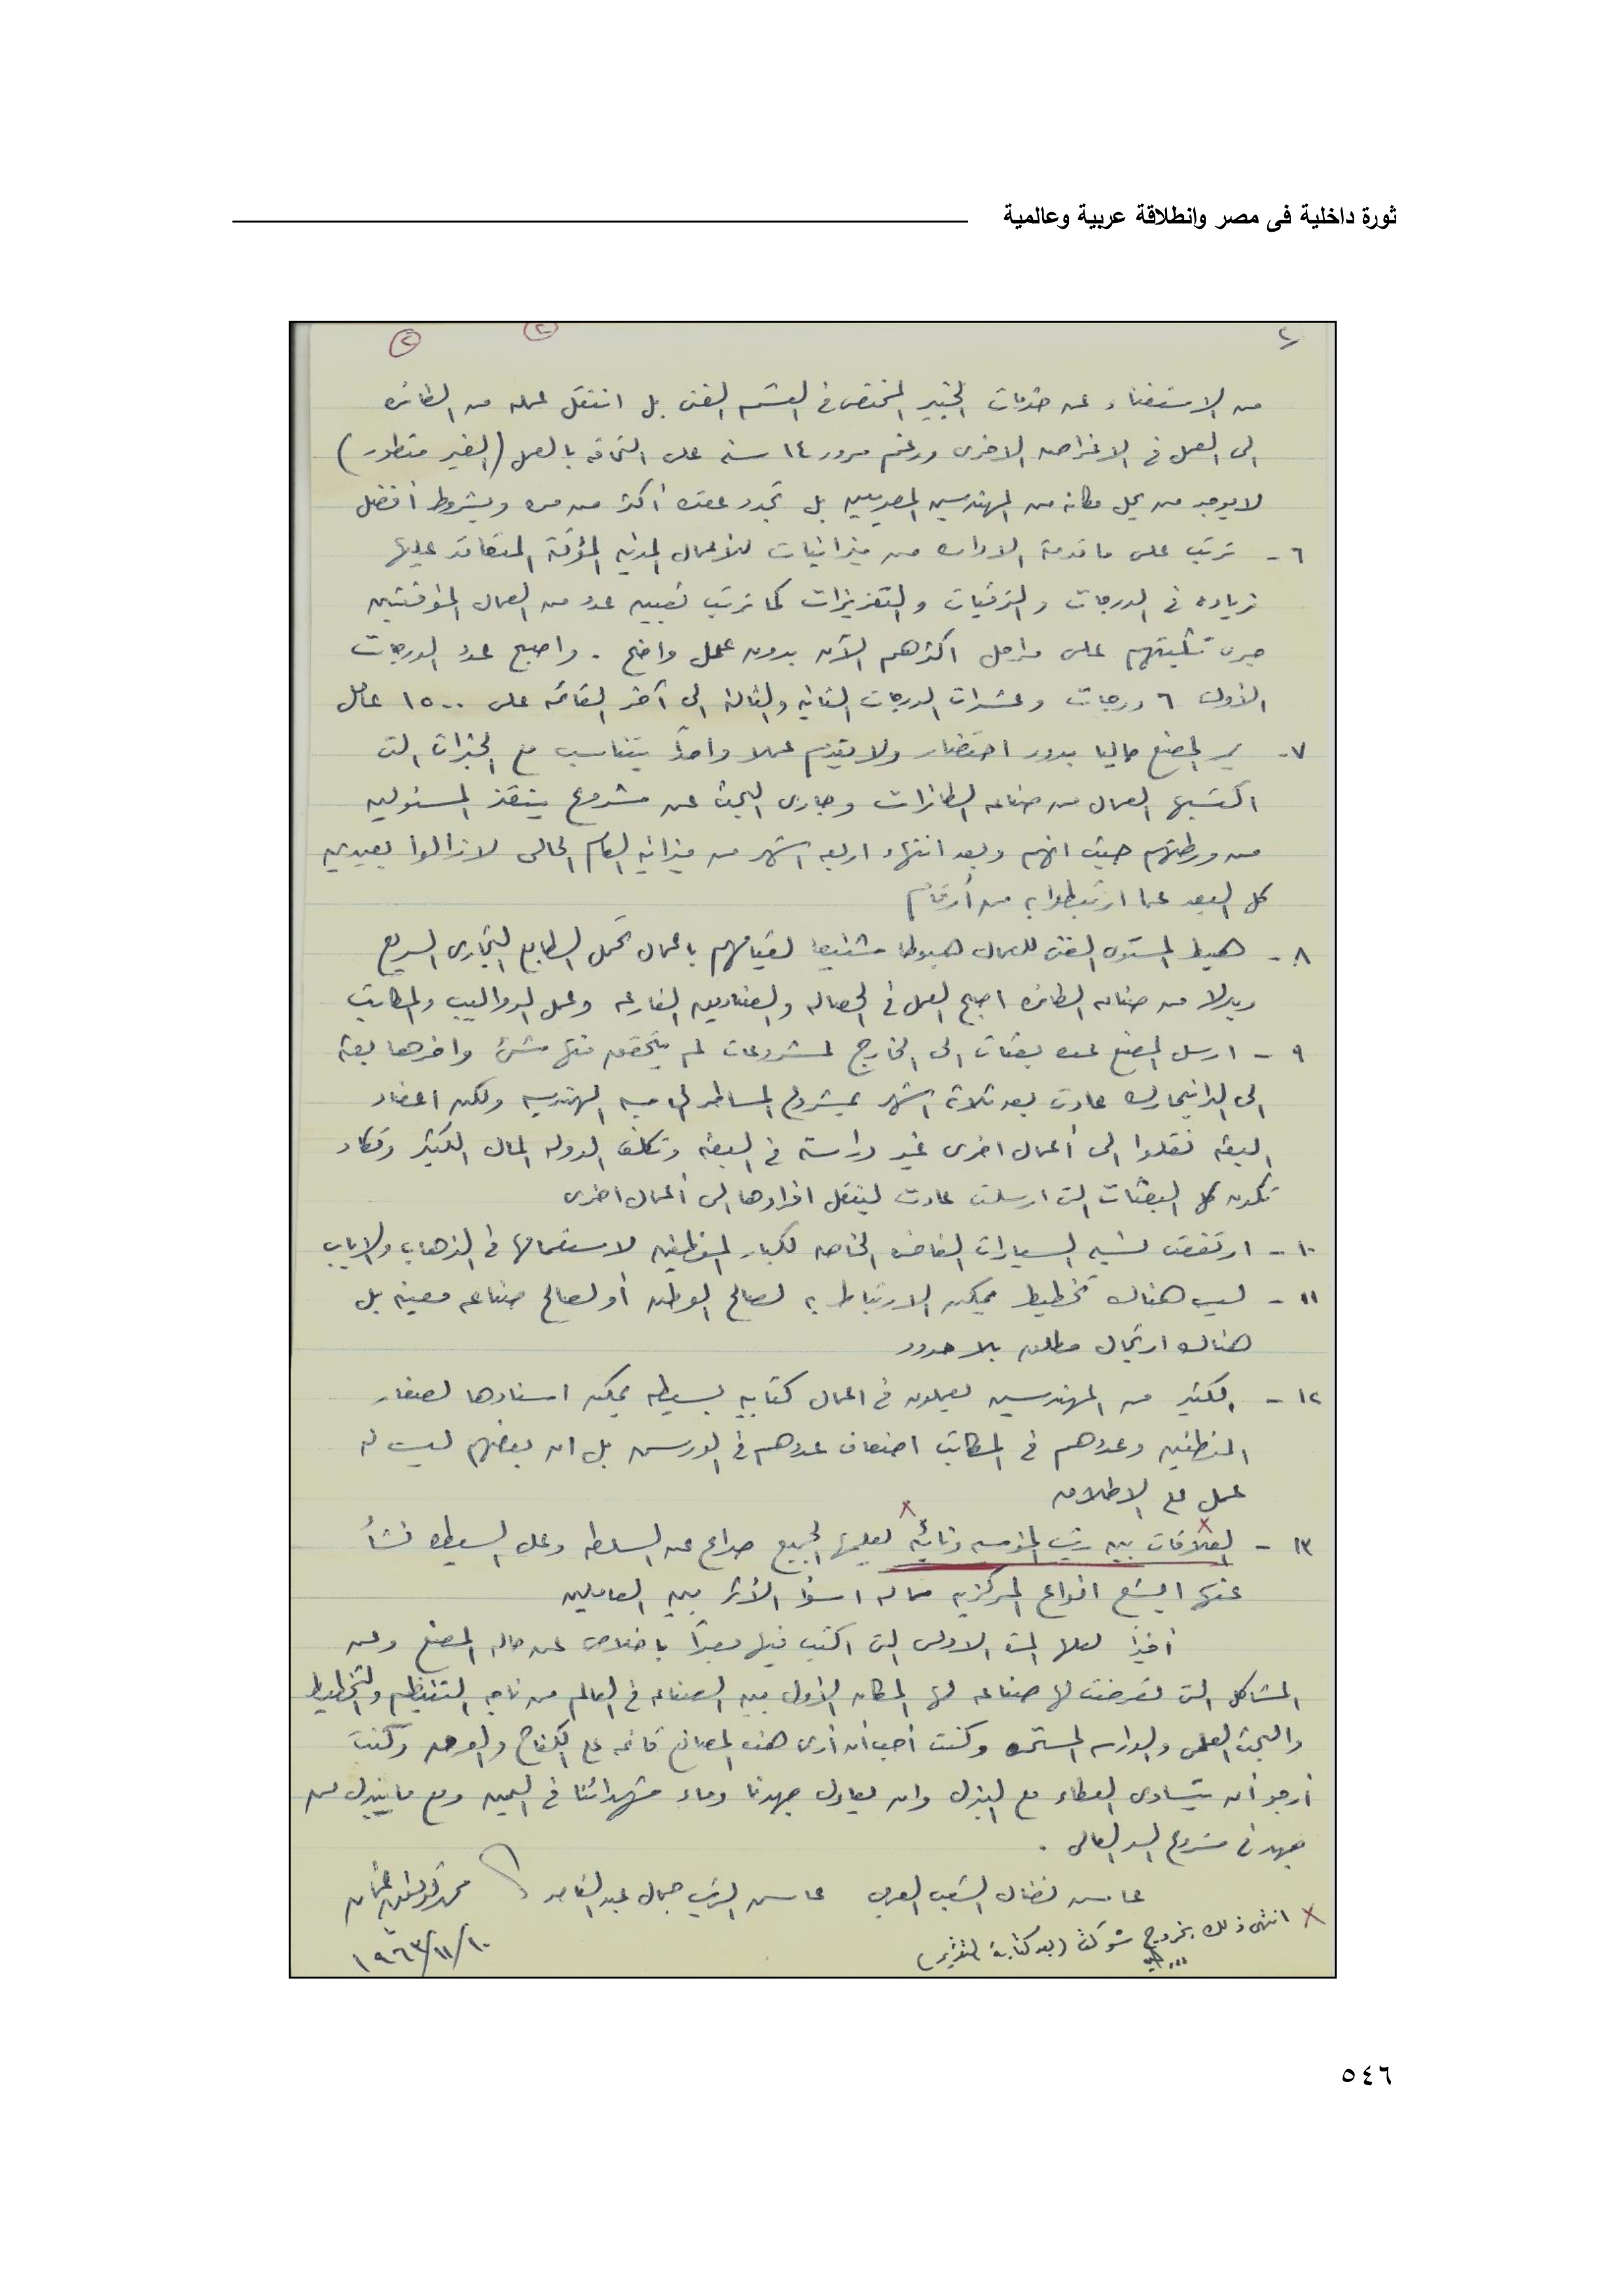 ثورة داخلية فى مصر وانطلاقة عربية وعالمية
٢
٢ ٢
من الاستغناء عن خدمات الخبير المختص فى القسم الفنى بل انتقل عمله من الطائره
الى العمل فى الاغراض الاخرى ورغم مرور ١٤ سنه على التحاقه بالعمل (الغير متطور)
لا يوجد من يحل مكانه من المهندسين المصريين بل تجدد عقده أكثر من مره وبشروط أفضل
٦ - ترتب على ما قدمته الاداره من ميزانيات للأعمال المدنيه المؤقتة المتعاقد عليها
زياده فى الدرجات والترقيات والتعزيزات كما ترتب تعيين عدد من العمال المؤقتين
جرى تثبيتهم على مراحل اكثرهم الآن بدون عمل واضح . واصبح عدد الدرجات
الأولى ٦ درجات وعشرات الدرجات الثانيه والثالثه الى آخر القائمه على ١٥٠٠ عامل
٧ - يمر المصنع حاليا بدور احتضار ولا يقدم عملا واحداً يتناسب مع الخبرات التى
اكتسبها العمال من صناعه الطائرات وجارى البحث عن مشروع ينقذ المسئولين
من ورطتهم حيث انهم وبعد انتهاء اربعه اشهر من ميزانيه العام الحالى لازالوا بعيدين
كل البعد عما ارتبطوا به من أرقام
٨ - هبط المستوى الفنى للعمال هبوطا شنيعا لقيامهم باعمال تحمل الطابع التجارى السريع
وبدلا من صناعه الطائره اصبح العمل فى الحصاله والصناديق الفارغه وعمل الدواليب والمكاتب
٩ - ارسل المصنع عده بعثات الى الخارج لمشروعات لم يتحقق منها شئ وآخرها بعثه
الى الدانيمارك عادت بعد ثلاثة اشهر بمشروع المساطر الحاسبه الهندسيه ولكن اعضاء
البعثه نقلوا الى أعمال اخرى غير دراسته فى البعثه وتكلف الدوله المال الكثير وتكاد
تكون كل البعثات التى ارسلت عادت لينقل افرادها الى أعمال اخرى
١٠ - ارتفعت نسبه السيارات الفاخره الخاصه لكبار الموظفين لاستعمالها فى الذهاب والاياب
١١ - ليس هناك تخطيط يمكن الارتباط به لصالح الوطن أو لصالح صناعه معينه بل
هناك ارتجال مطلق بلا حدود
١٢ - الكثير من المهندسين يعملون فى اعمال كتابيه بسيطه يمكن اسنادها لصغار
الموظفين وعددهم فى المكاتب اضعاف عددهم فى الورش بل ان بعضهم ليس له
عمل على الاطلاق
١٣ - العلاقات بين رئيس المؤسسه ونائبه يعلمها الجميع صراع عن السلطه وعلى السيطره نشأ
عنها ابشع انواع المركزيه مما له اسوأ الأثر بين العاملين
أخيراً لعلها المره الاولى التى اكتب فيها معبراً باخلاص عن حاله المصنع وعن
المشاكل التى تعرضت لها صناعه لها المكان الأول بين الصناعه فى العالم من ناحيه التنظيم والتخطيط
والبحث العلمى والدراسه المستمره وكنت احب أن أرى هذه المصانع قائمه على الكفاح والعرق وكنت
أرجو أن يتساوى العطاء مع البذل وان يعادل جهدنا دماء شهدائنا فى اليمن ومع ما يبذل من
جهد فى مشروع السد العالى .
عاش نضال الشعب العربى عاش الرئيس جمال عبد الناصر
محمد عثمان
١٩٦٣/١١/١٠
× انتهى ذلك بخروج شوكت (بعد كتابة التقرير)
٥٤٦